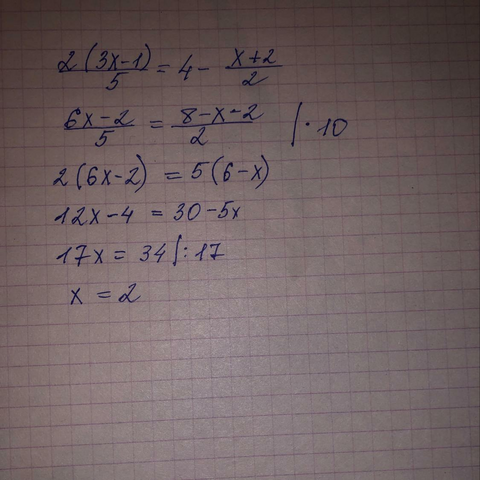 2(3x-1)/5 = 4 - x+2/2
6x-2/5 = 8-x-2/2 | · 10
2(6x-2) = 5(6-x)
12x-4 = 30-5x
17x = 34 | : 17
x = 2